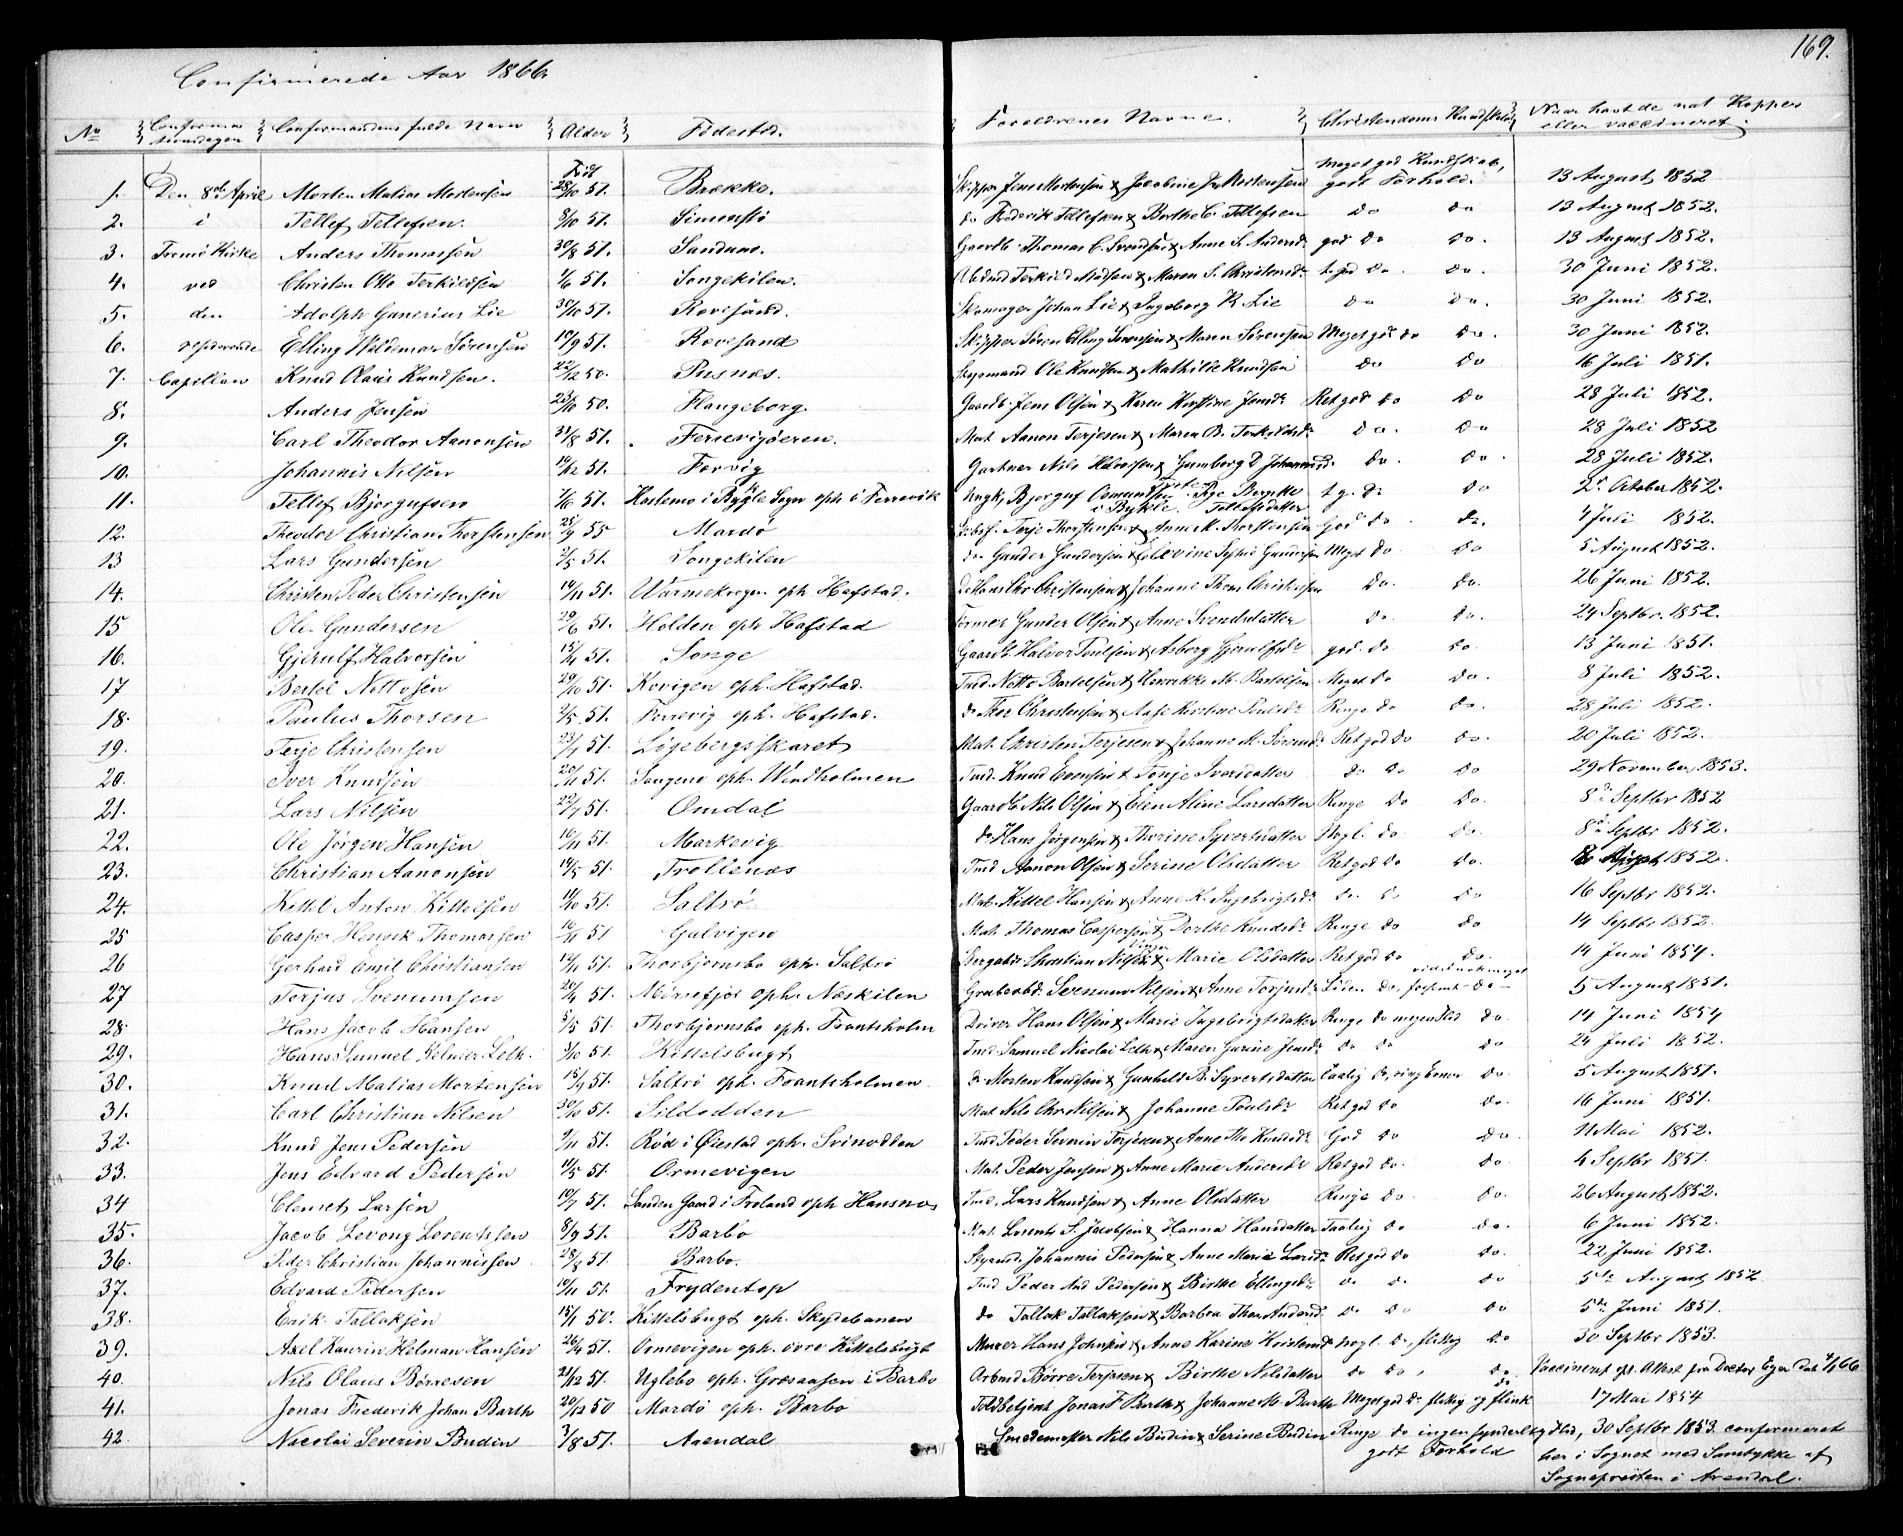 169.
Confirmerede Aar 1866.
No Confirmationsdagen Confirmandens fulde Navn Alder Födested. Forældrenes Navne. Christendoms Kundskab Naar havt de nat. Kopper eller vaccineret.
Född Meget god Kundskab,
1. Den 8de April Morten Matias Mortensen 28/10 51. Brække. Skipper Jens Mortensen & Jacobine J. Mortensen godt Forhold. 13 August 1852
2. i Tellef Tellefsen. 8/10 51. Simonstö do Frederik Tellefsen & Berthe C. Tellefsen do do 13 August 1852.
3. Tromö Kirke Anders Thomassen 30/8 51. Sandum. Gaardb. Thomas C. Svendsen & Anne S. Andersd. god do do. 13 August 1852.
4. ved Christen Otto Terkildsen 1/6 51. Songekilen. Arbmd Terkild Madsen & Maren S. Christensd. t. god do. do. 30 Juni 1852.
5. den Adolph Gunerius Lie 30/10 51. Revesand. Skomager Johan Lie & Ingeborg K. Lie do do. 30 Juni 1852.
6. residerende Elling Waldemar Sörensen 19/9 51. Revesand Skipper Sören Elling Sörensen & Maren Sörensen Meget god do do. 30 Juni 1852.
7. Capellan Knud Olaus Knudsen. 22/12 50. Pusnæs. Styrmand Ole Knudsen & Mathilde Knudsen do do 16 Juli 1851.
8. Anders Jensen 23/10 50. Flangeborg. Gaardb. Jens Olsen & Karen Kirstine Jensd. Ret god do do 28 Juli 1852.
9. Carl Theodor Aanonsen 31/8 51. Fersevigöeren. Mat. Aanon Terjesen & Maren B. Terkildsd. do. do 28 Juli 1852
10. Johannis Nilsen 19/12 51. Færvig Gartner Nils Halvorsen & Gumborg D. Johannisd. do. do. 28 Juli 1852.
11. Tellef Bjorgufsen 7/6 51. Haslemo i Bygle Sogn oph. i Ferrevik Ungk. Bjorguf Osmundsen & Pige Bergitte Tellefsdatter i Bykle. t. g. do do 2. October 1852.
12. Theodor Christian Thorstensen 25/9 55 Mardö Skibsf. Terje Thorstensen & Anne M. Thorstensen God do do. 4 Juli 1852.
13 Lars Gundersen 2/5 51. Songekilen do. Gunder Gundersen & Elevine Sophie Gundersen Meget do. do 5 August 1852.
14. Christen Peder Christensen 14/11 51. Warmekrogen oph. Hafstad. do Hans Chr. Christensen & Johanne Thom. Christensen do. do. 26 Juni 1852.
15 Ole Gundersen 29/6 51. Holden oph. Hafstad Tömmer Gunder Olsen & Anne Svendsdatter do. do. 24 Septbr. 1852.
16. Gjerulf Halvorsen 15/4 51. Songe Gaardb. Halvor Poulsen & Asborg Gjerulfsd. god do do. 13 Juni 1851.
17 Bertel Nottosen 29/10 51. Kovigen oph. Hafstad. Tmd. Notto Bertelsen & Henrikke M. Bertelsen Meget do do. 8 Juli 1852.
18. Paulus Thorsen 2/5 51. Ferrevig oph. Hafstad. do Thor Christensen & Aase Kirstine Poulsd. Ringe do do. 28 Juli 1852.
19. Terje Christensen 23/7 51. Lögebergsskaret Mat. Christen Terjesen & Johanne M. Sörensd. Ret god do do. 20 Juli 1852.
20. Iver Knudsen 20/11 51. Songene oph. Windholmen Tmd. Knud Evensen & Tonje Iversdatter do do do 29 November 1853.
21. Lars Nilsen 22/7 51. Omdal Gaardb. Nils Olsen & Elen Aline Larsdatter Ringe do do. 8de Septbr 1852
22. Ole Jörgen Hansen 16/11 51. Markevig do Hans Jörgensen & Thorine Syvertsdatter Nogl. do do. 8de Septbr 1852.
23. Christian Aanonsen 14/5 51. Trollenæs Tmd Aanon Olsen & Serine Olsdatter Ret god do do. August 1852.
24. Kittel Anton Kittelsen 11/10 51. Saltrö Mat. Kittel Hansen & Anne K. Ingebrigtsd. do. do do 16 Septbr 1852.
25 Casper Henrik Thomassen 16/11 51 Galvigen Mat. Thomas Caspersen & Dorthe Knudsd. Ringe do do 14 Septbr 1852.
26 Gerhard Emil Christiansen 14/11 51. Thorbjornsbo oph. Saltrö Bergarb. Christian Nilsen & Marie Olsdatter Ret god do do. 14 Juni 1854.
27 Terjus Svenumsen 20/4 51. Mörsefjor oph. Næskilen Grubearbd. Svenum Nilsen & Anne Terjusd. Liden do, do 5 August 1851.
28. Hans Jacob Hansen 5/5 51. Thorbjornsbo oph. Frantsholm Driver Hans Olsen & Marie Ingebrigtsdatter Ringe do megen Flid do. 14 Juni 1854
29. Hans Samuel Lelk. 3/10 51. Kittelsbugt Tmd. Samuel Nicolai Lelk & Maren Gurine Jensd. do do do 24 Juli 1852.
30. Knud Matias Mortensen 18/7 51. Saltrö oph. Frantsholmen Morten Knudsen & Gunhild B. Syvertsdatter Taalig do, ringe Evner do 5 August 1851.
31. Carl Christian Nilsen 30/10 51. Sildodden Mat. Nils Chr. Nilsen & Johanne Poulsd. Ret god do do. 16 Juni 1851.
32. Knud Jens Pedersen 9/11 51. Röd i Öiestad oph. Svinodden Tmd. Peder Severin Terjesen & Anne Mo Knudsd. God do do. 11 Mai 1852.
33. Jens Edvard Pedersen 11/5 51. Ormevigen Mat. Peder Jensen & Anne Marie Andersd. Ret god do. do 4 Septbr 1851.
34 Clemet Larsen 10/7 51. Landen Gaard i Froland oph Hansnæs Tmd. Lars Knudsen & Anne Olsdatter Ringe do. do. 26 August 1852.
35. Jacob Levong Lorentssen 8/9 51. Barbo Mat. Lorents S. Jacobsen & Hanna Hansdatter Taalig do do. 6 Juni 1852.
36. Peder Christian Johannissen 28/8 51. Barbo. Styrmd. Johannis Pedersen & Anne Marie Larsd. Ret god do do. 22 Juni 1852.
37. Edvard Pedersen 10/11 51. Frydentop Tmd Peder And. Pedersen & Birthe Ellingsd. do do. do 5te August 1852
38. Erik Tallaksen 15/1 50. Kittelsbugt oph. Skydebanen do Tallak Tallaksen & Barbra Thom. Andersd. do do do 5te Juni 1851.
39. Axel Kaurin Helman Hansen 26/4 51. Ormevigen oph. övre Kittelsbugt Murer Hans Johnsen & Anne Karine Kristensd. nogl. do, flittig do 30 Septbr 1853.
40. Nils Olaus Börresen 21/12 51. Uglebo oph. Græsaasen i Barbo Arbmd Börre Terjesen & Birthe Nilsdatter do do, do Vaccineret eft. Attest fra Doctor Eyer Dat. 4/1 66
41. Jonas Frederik Johan Barth 20/12 50 Mardö oph. Barbo Toldbetjent Jonas F. Barth & Johanne M. Barth Meget god do flittig og flink do 17 Mai 1854
42. Nicolai Severin Budin 3/8 51. Arendal Smedemester Nils Budin & Serine Budin Ringe do ingen synderlig Flid, 30 Septbr 1853. confirmeret
godt Forhold her i Sognet med Samtykke af
Sognepresten i Arendal.